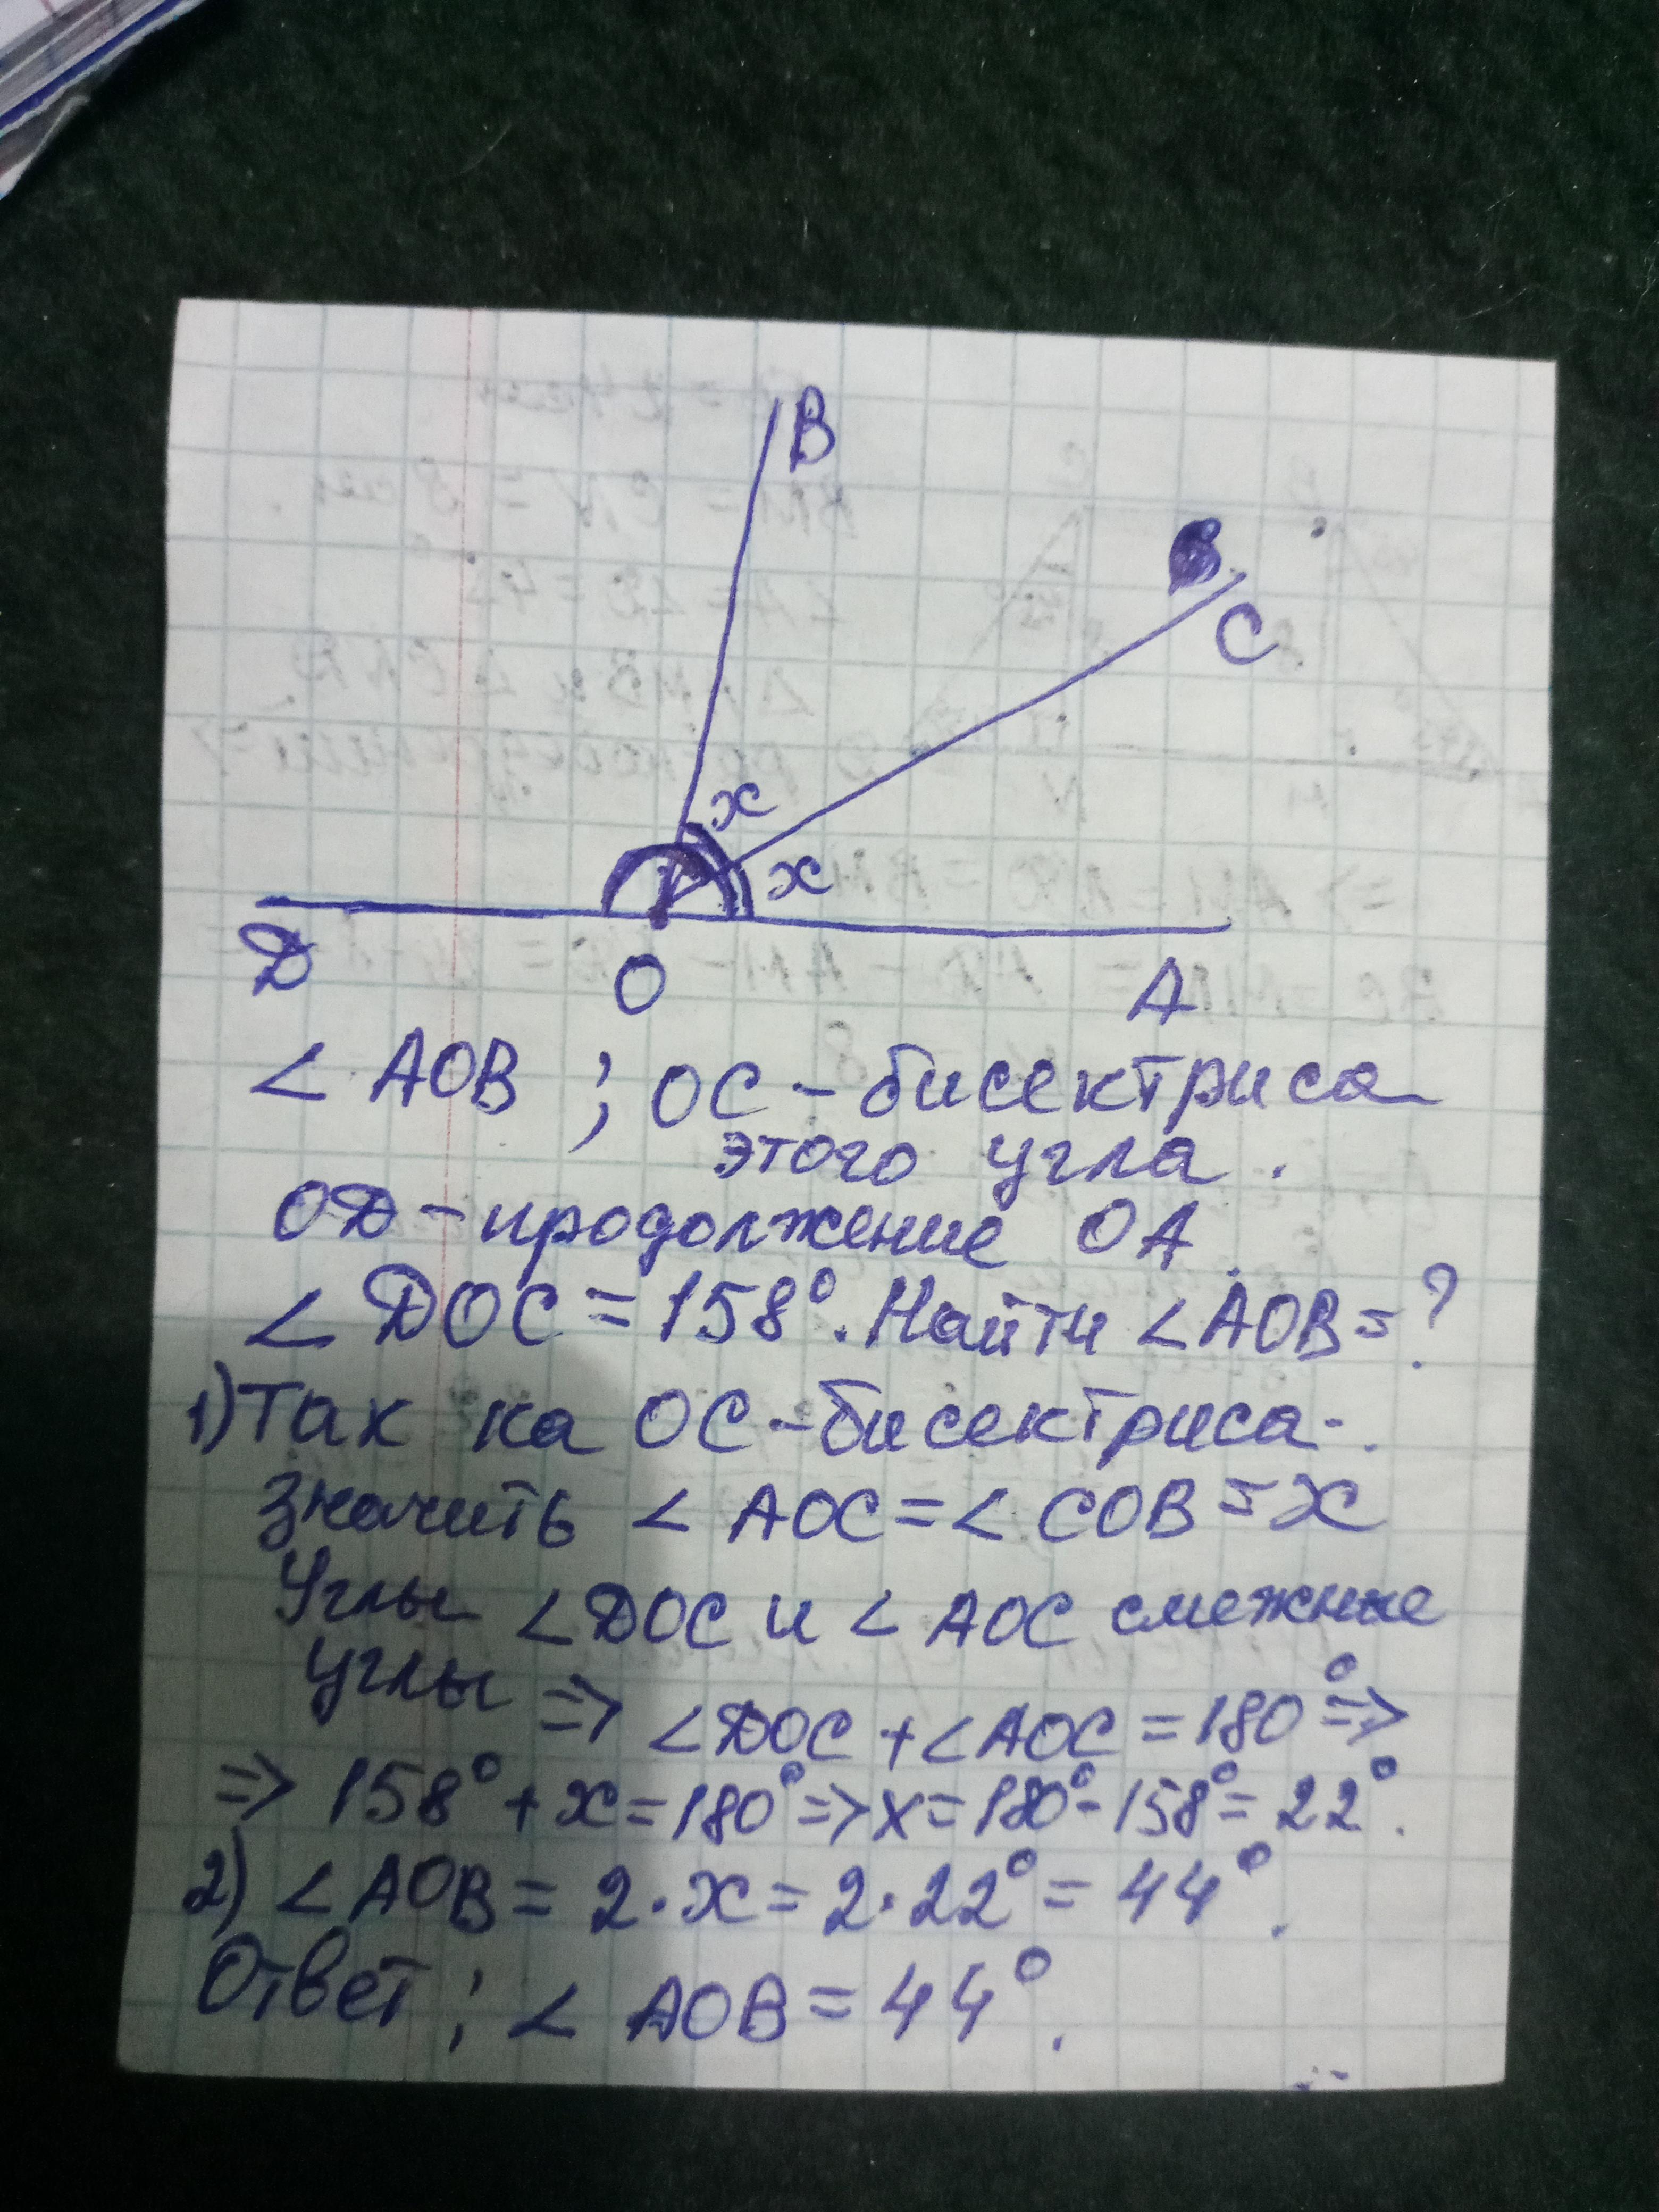 B
C
x
x
D O A
∠ AOB ; OC – бисектриса
этого угла .
OD – продолжение OA .
∠ DOC = 158°. Найти ∠ AOB = ?
1) Так ка OC – бисектриса .
Значить ∠ AOC = ∠ COB = x
Углы ∠ DOC и ∠ AOC смежные
углы => ∠ DOC + ∠ AOC = 180° =>
=> 158° + x = 180° => x = 180° - 158° = 22° .
2) ∠ AOB = 2 · x = 2 · 22° = 44° .
Ответ ; ∠ AOB = 44° .